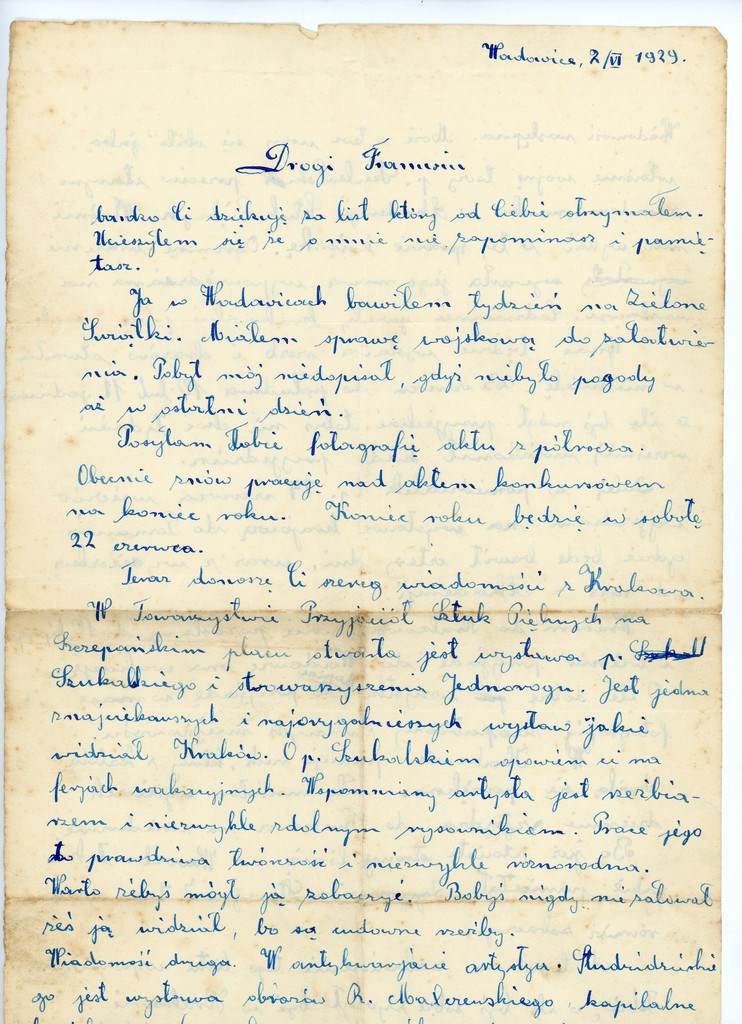 Wadowice, 2/VI 1929.
Drogi Franusiu
bardzo Ci dziękuję za list który od Ciebie otrzymałem.
Ucieszyłem się że o mnie nie zapominasz i pamię-
tasz.
Ja w Wadowicach bawiłem tydzień na Zielone
Świątki. Miałem sprawę wojskową do załatwie-
nia. Pobyt mój niedopisał, gdyż niebyło pogody
aż w ostatni dzień.
Posyłam Tobie fotografię aktu z półrocza.
Obecnie znów pracuję nad aktem konkursowem
na koniec roku. Koniec roku będzię w sobotę
22 czerwca.
Teraz donoszę Ci szereg wiadomości z Krakowa.
W Towarzystwie Przyjaciół Sztuk Pięknych na
Szczepańskim placu otwarta jest wystawa p.
Szukalskiego i stowarzyszenia Jednorogu. Jest jedna
znajciekawszych i najorygalniejszych wystaw jakie
widział Kraków. O p. Szukalskiem opowiem ci na
ferjach wakacyjnych. Wspomniany artysta jest rzeźbia-
rzem i niezwykle zdolnym rysownikiem. Prace jego
to prawdziwa twórczość i niezwykle różnorodna.
Warto żebyś mógł ją zobaczyć. Bobyś nigdy nie żałował
żéś ją widział, bo są cudowne rzeźby.
Wiadomość druga. W antykwarjacie artysty. Studzidzkie
go jest wystawa obrazów R. Malczewskiego, kapitalne